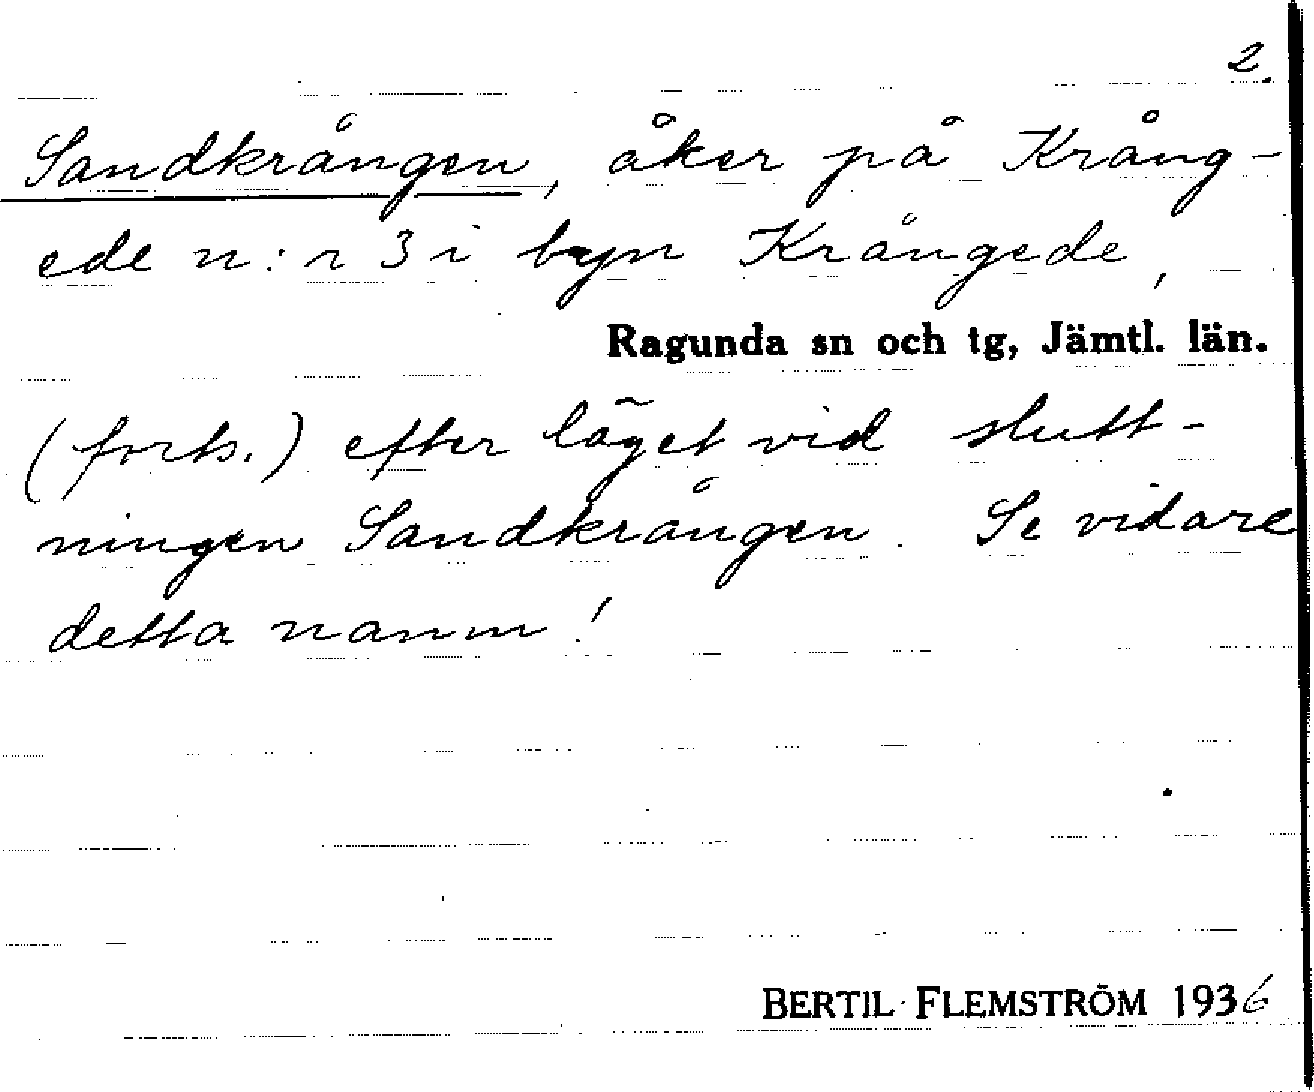 2.
Sandkrången, åker på Krång-
ede n:r 3 i byn Krångede,
Ragunda sn och tg, Jämtl. län.
(forts.) efter läget vid slutt-
ningen Sandkrången. Se vidare
detta namn!
BERTIL FLEMSTRÖM 1936